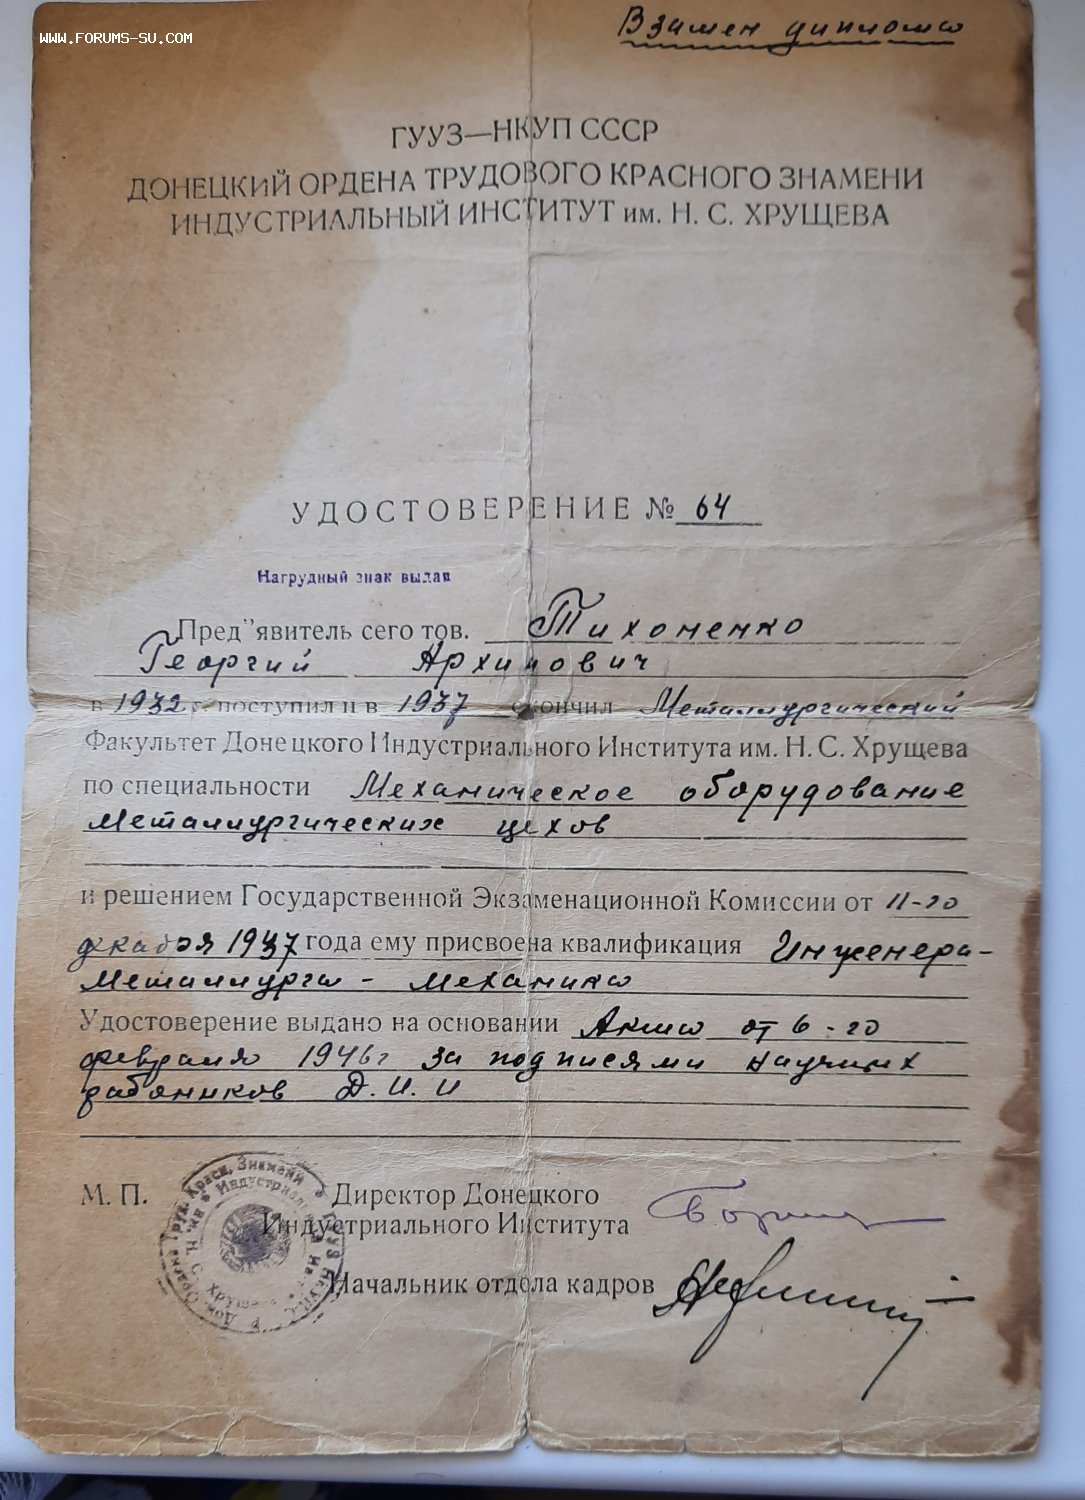 www.forums-su.com
Взамен диплома
ГУУЗ—НКУП СССР
ДОНЕЦКИЙ ОРДЕНА ТРУДОВОГО КРАСНОГО ЗНАМЕНИ
ИНДУСТРИАЛЬНЫЙ ИНСТИТУТ им. Н. С. ХРУЩЕВА
УДОСТОВЕРЕНИЕ № 64
Нагрудный знак выдан
Пред"явитель сего тов. Тихоненко
Георгий Архипович
в 1932 г. поступил и в 1937 окончил Металлургический
Факультет Донецкого Индустриального Института им. Н. С. Хрущева
по специальности Механическое оборудование
металлургических цехов
и решением Государственной Экзаменационной Комиссии от 11-го
декабря 1937 года ему присвоена квалификация Инженера-
металлурга - механика
Удостоверение выдано на основании Акта от 6-го
февраля 1946 г за подписями научных
работников Д.И.И
М. П.
Директор Донецкого
Индустриального Института
Начальник отдела кадров